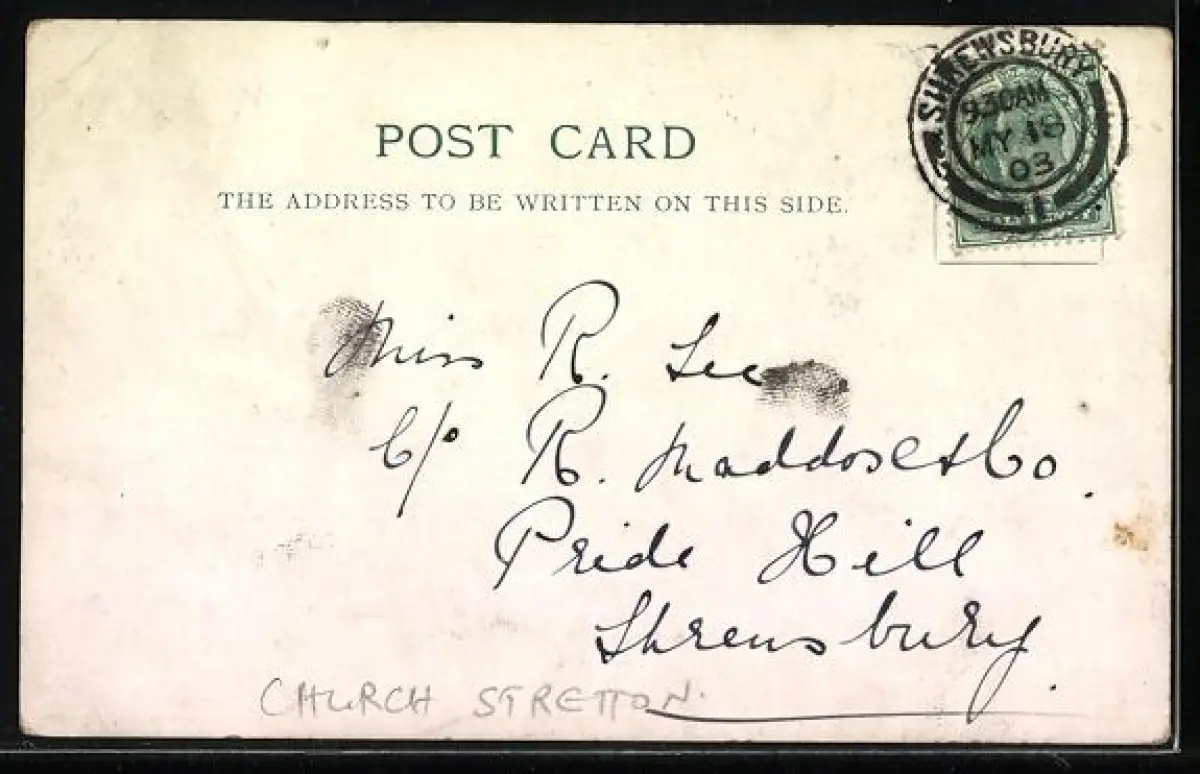 POST CARD
THE ADDRESS TO BE WRITTEN ON THIS SIDE.
SHREWSBURY
930AM
MY 18
03
1
Miss R. Lee
C/o R. Maddox & Co.
Pride Hill
Shrewsbury.
CHURCH STRETTON.